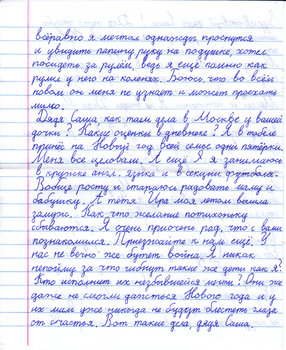 всёравно я мечтал однажды проснутся
и увидить папину руку на подушке, хотел
посидеть за рулём, ведь я ещё помню как
рулил у него на коленях. Боюсь, что во всём
новом он меня не узнает и может проехать
мимо.
Дядя Саша, как там дела в Москве у вашей
дочки? Какие оценки в дневнеке? Я в табеле
принёс на Новый год всей семье одни пятёрки.
Меня все целовали. А ещё я занимаюсь
в кружке англ. языка и в секции футбола.
Вобще росту и стараюсь радовать маму и
бабушку. А тётя Ира моя летом вышла
замуж. Как, что желание потихоньку
сбываются. Я очень приочень рад, что с вами
познакомился. Приезжайте к нам ещё. У
нас не вечно же будет война. Я никак
непойму за что гибнут такие же дети как я?
Кто исполнит их незбывшиеся мечты? Они же
даже не смогли даждться Нового года и у
их мам уже никогда не будут блестеть глаза
от счастья. Вот такие дела, дядя Саша.